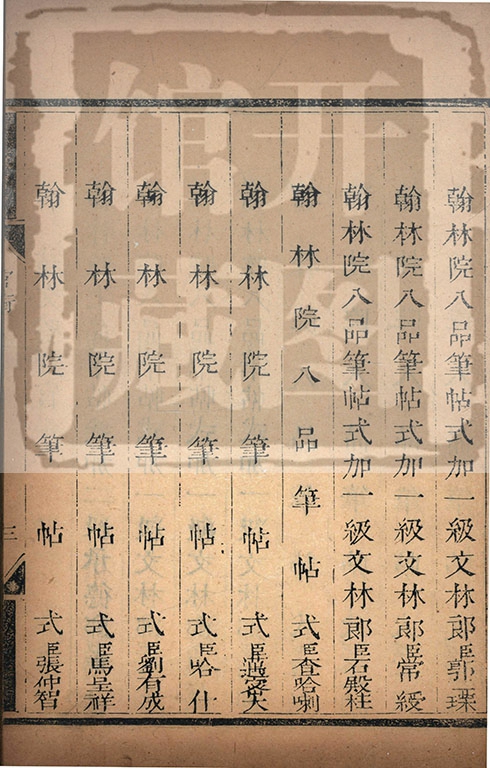 翰林院八品筆帖式加一級文林郎臣郭瑮
翰林院八品筆帖式加一級文林郎臣常綬
翰林院八品筆帖式加一級文林郎臣石殿柱
翰林院八品筆帖式臣查哈喇
翰林院筆帖式臣邁
翰林院筆帖式臣哈什
翰林院筆帖式臣劉有成
翰林院筆帖式臣馬呈祥
翰林院筆帖式臣張仲智
三
开图
馆藏